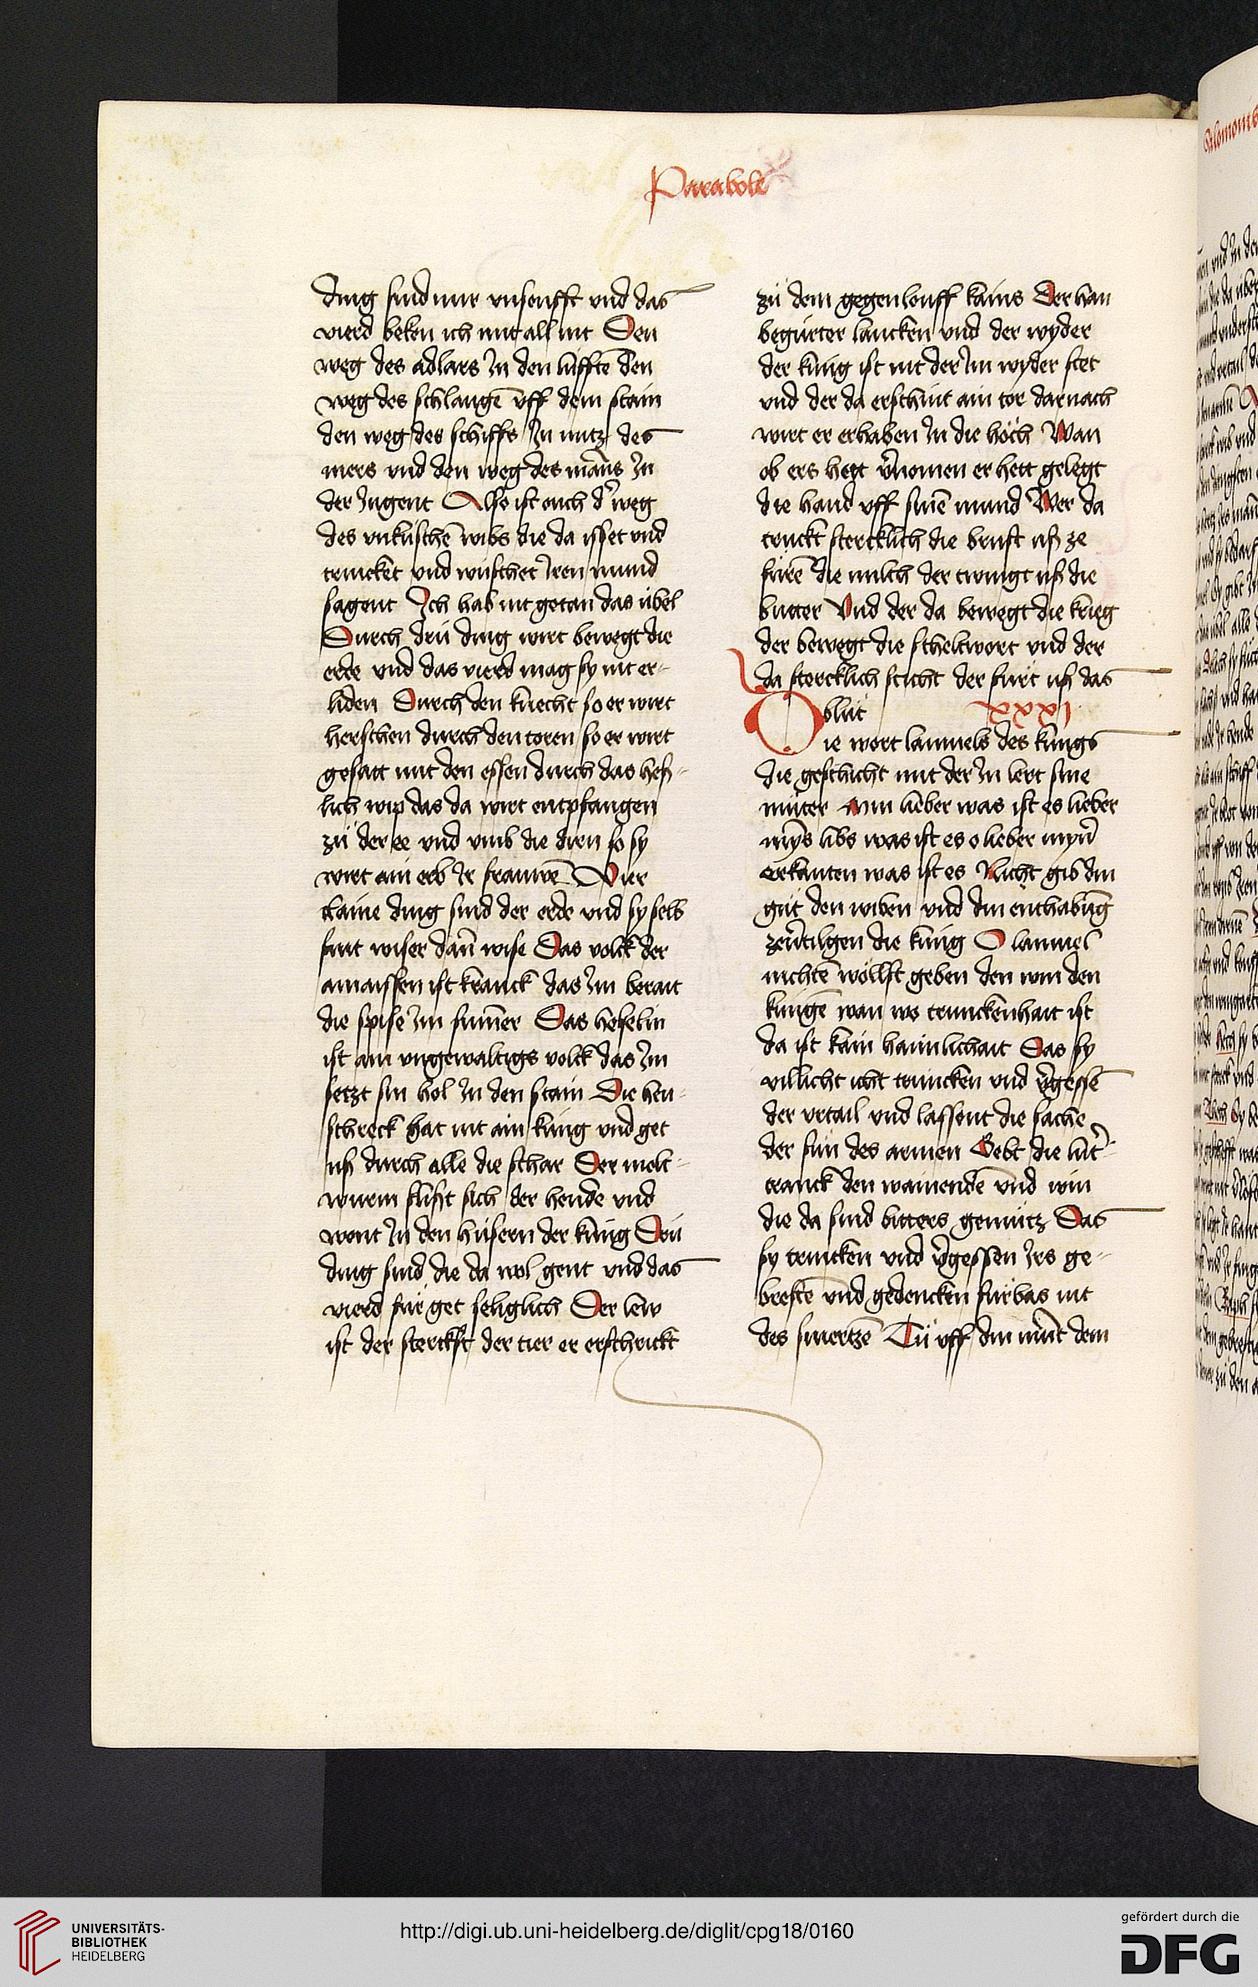 Parabole
ding sind mir vnsenfft vnd das
vierd beken ich mit all nit Den
weg des adlars Jn den lüfften̄ den
weg des schlangē vff dem stain
den weg des schiffs Jn mitz des
mers vnd den weg des mañs Jn
der Jugent Also ist auch d' weg
des vnküschē wibs die da isset vnd
trincket vnd wüschet Jren mund
sagent Ich hab nit getan das übel
Durch drü ding wirt bewegt die
erde vnd das vierd mag sy nit er-
liden Durch den knecht so er wirt
herschen durch den toren so er wirt
gesatt mit den essen durch das heß-
lich wip das da wirt entpfangen
zü der ee vnd vmb die dirn so sy
wirt ain erb Jr frauwē Vier
claine ding sind der erde vnd sy selb
sint wiser dañ wise Das volck der
amaissen ist kranck das Jm berait
die spise Jm sum̄er Das heselin
ist ain vngewaltigs volck das Jm
setzt sin hol Jn den stain Die heu-
schreck hat nit ain küng vnd get
uß durch alle die schar Der molt-
wurm flißt sich der hende vnd
wont Jn den hüsern der küng Drü
ding sind die da wol gent vnd das
vierd für get seliglich Der lew
ist der sterckst der tier er erschrickt
zü dem gegenlouff kains Der han
begürter lancken vnd der wyder
der küng ist nit der Jm wyder stet
vnd der da erschint ain tor darnach
wirt er erhaben Jn die höch Wan
ob ers hett v'nomen er hett gelegt
die hand vff sinē mund Wer da
truckt stercklich die brust uß ze
fürē die milch der twingt uß die
butter Vnd der da bewegt die krieg
der bewegt die scheltwort vnd der
da stercklich sticht der fürt uß das
blüt xxxj
Die wort lamuels des küngs
die geschicht mit der Jn lert sine
müter Min lieber was ist es lieber
mȳs libs was ist es o lieber myn'
erkanten was ist es Nicht gib din
güt den wiben vnd din enthabung
zev'tilgen die küng O lamuel
nichtē wöllst geben den win den
küngē wan wo trunckenhait ist
da ist kain haimlichait Das sy
villicht icht trincken vnd v'gessē
der vrtail vnd lassent die sache
der sün des armen Gebt die lüt'-
tranck den wainendē vnd win
die da sind bitters gemütz Das
sy trincken vnd v'gessen Jrs ge-
brestē vnd gedencken fürbas nit
des smertzē Tü vff din mūt dem
Salomonis
UNIVERSITÄTS-
BIBLIOTHEK
HEIDELBERG
http://digi.ub.uni-heidelberg.de/diglit/cpg18/0160
gefördert durch die
DFG